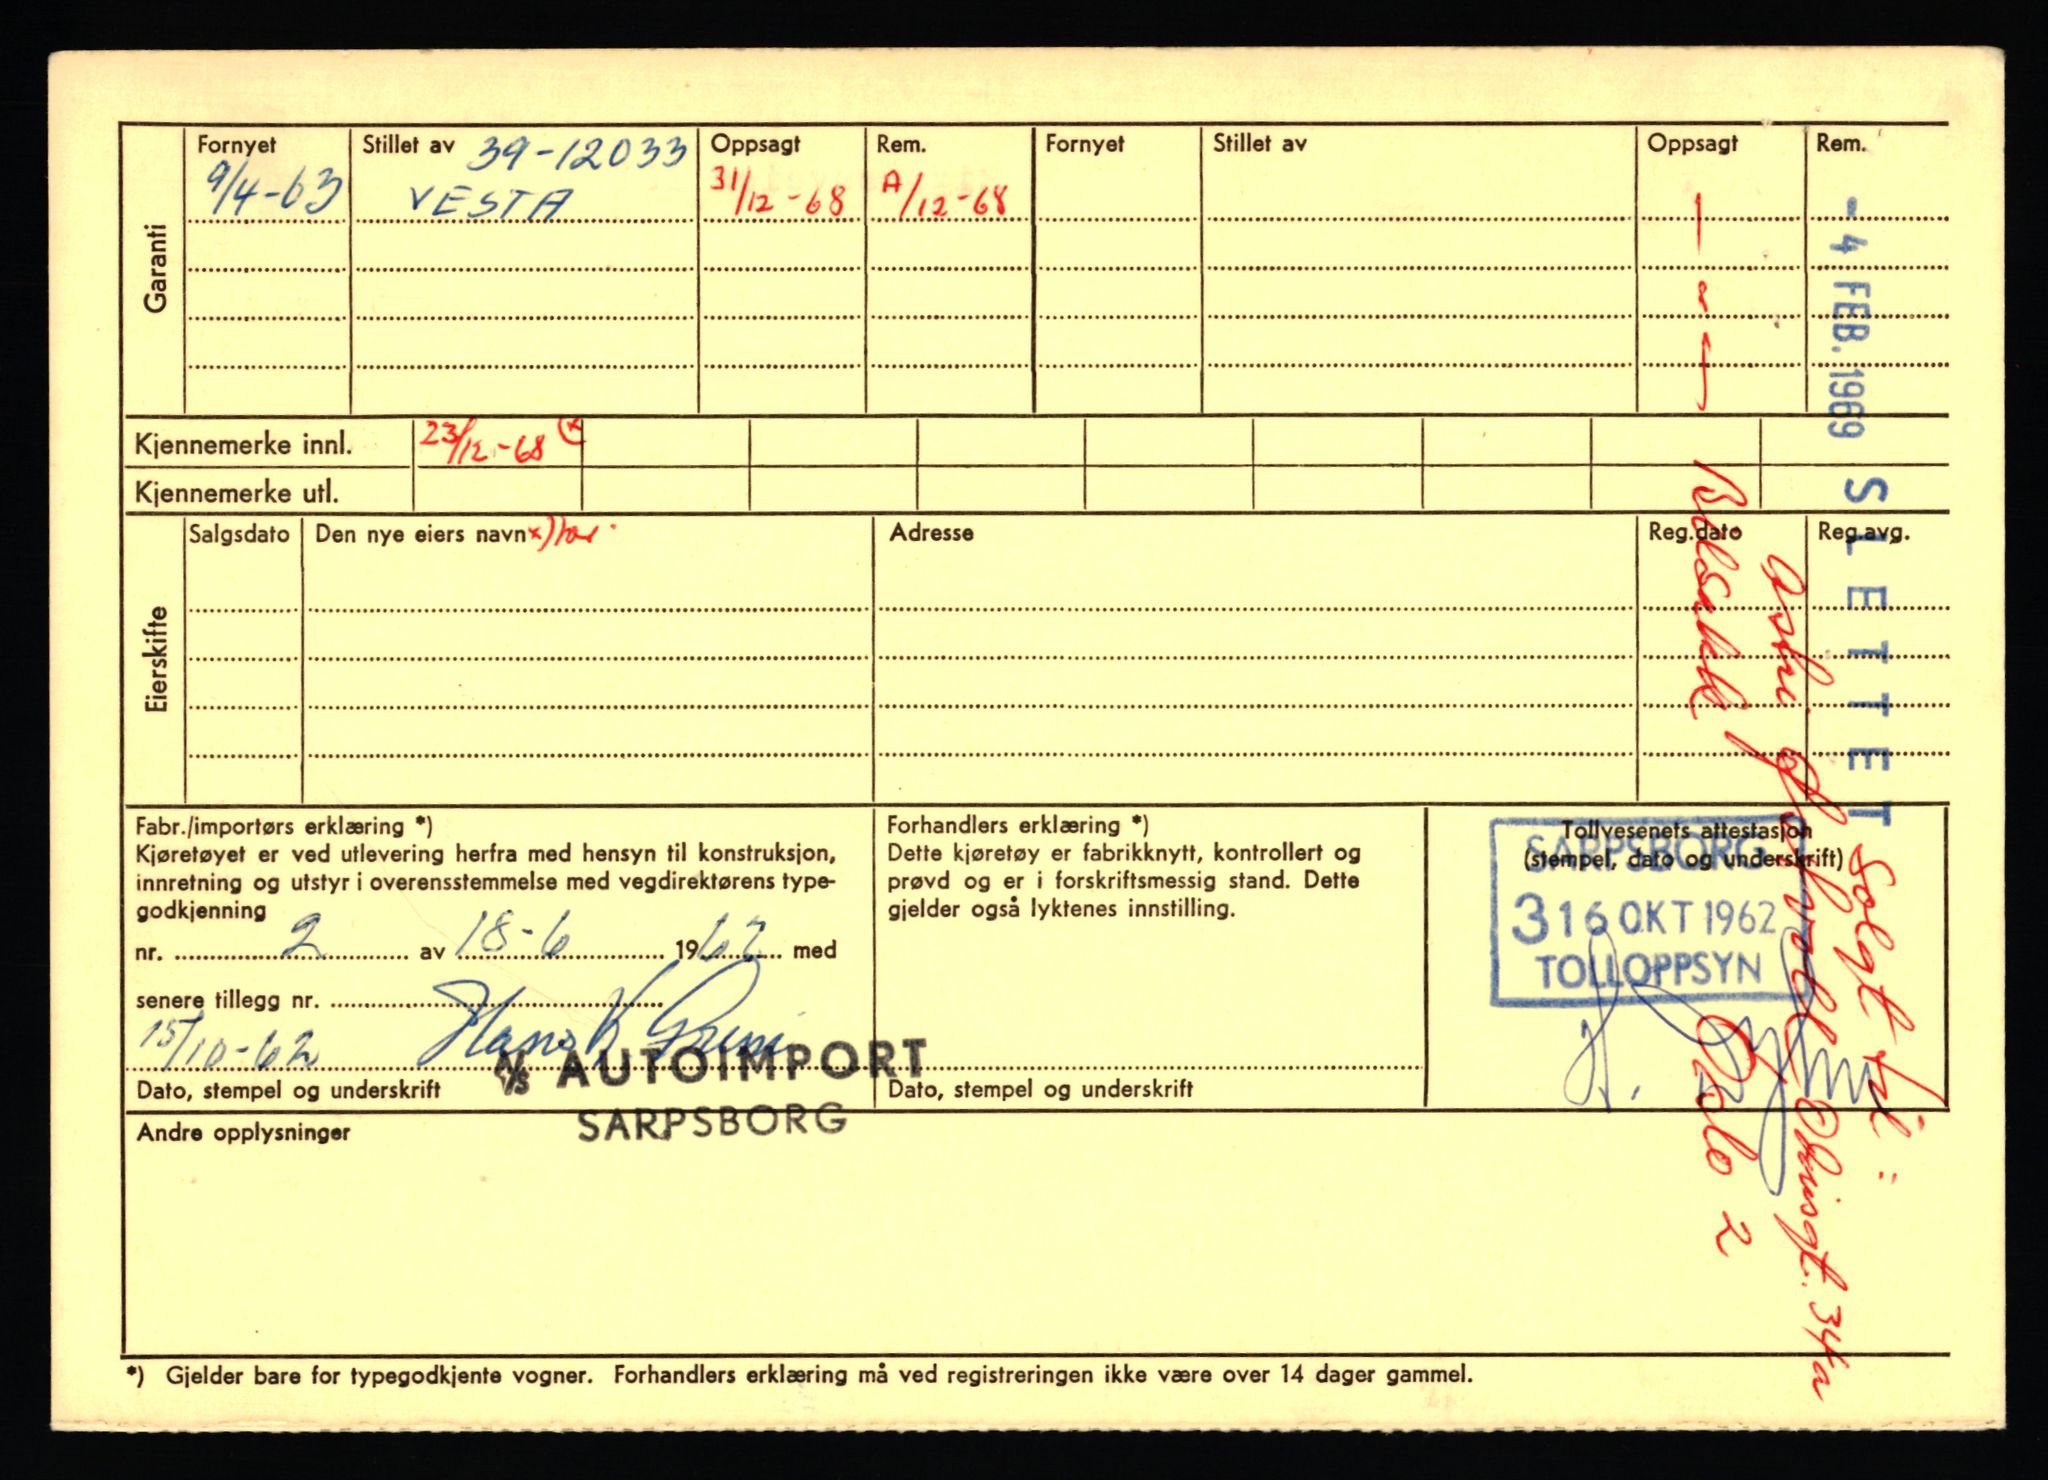 Garanti
Fornyet Stillet av 39-12033 Oppsagt Rem. Fornyet Stillet av Oppsagt Rem.
9/4-63 VESTA 31/12-68 A/12-68
Kjennemerke innl. 23/12-68 (x
Kjennemerke utl.
Eierskifte
Salgsdato Den nye eiers navn x) Adresse Reg.dato Reg.avg.
- 4 FEB. 1969 SLETTET
solgt til:
Chrisgt. 34a
Oslo 2
Fabr./importørs erklæring *)
Kjøretøyet er ved utlevering herfra med hensyn til konstruksjon,
innretning og utstyr i overensstemmelse med vegdirektørens type-
godkjenning
nr. 2 av 18-6 1962 med
senere tillegg nr.
15/10-62 Hans K
A/S AUTOIMPORT
SARPSBORG
Dato, stempel og underskrift
Forhandlers erklæring *)
Dette kjøretøy er fabrikknytt, kontrollert og
prøvd og er i forskriftsmessig stand. Dette
gjelder også lyktenes innstilling.
Dato, stempel og underskrift
Tollvesenets attestasjon
(stempel, dato og underskrift)
SARPSBORG
3 16 OKT 1962
TOLLOPPSYN
Andre opplysninger
*) Gjelder bare for typegodkjente vogner. Forhandlers erklæring må ved registreringen ikke være over 14 dager gammel.